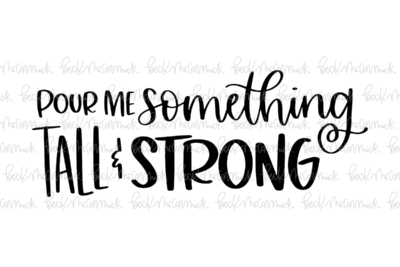 POUR ME something
TALL & STRONG